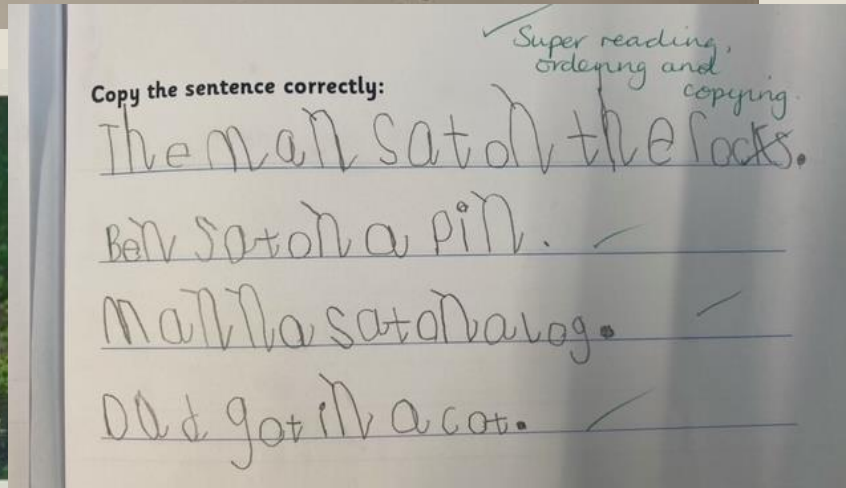 Super reading,
ordering and
copying.
Copy the sentence correctly:
The man sat on the rocks.
Ben sat on a pin.
Manna sat on a log.
Dad got in a cot.